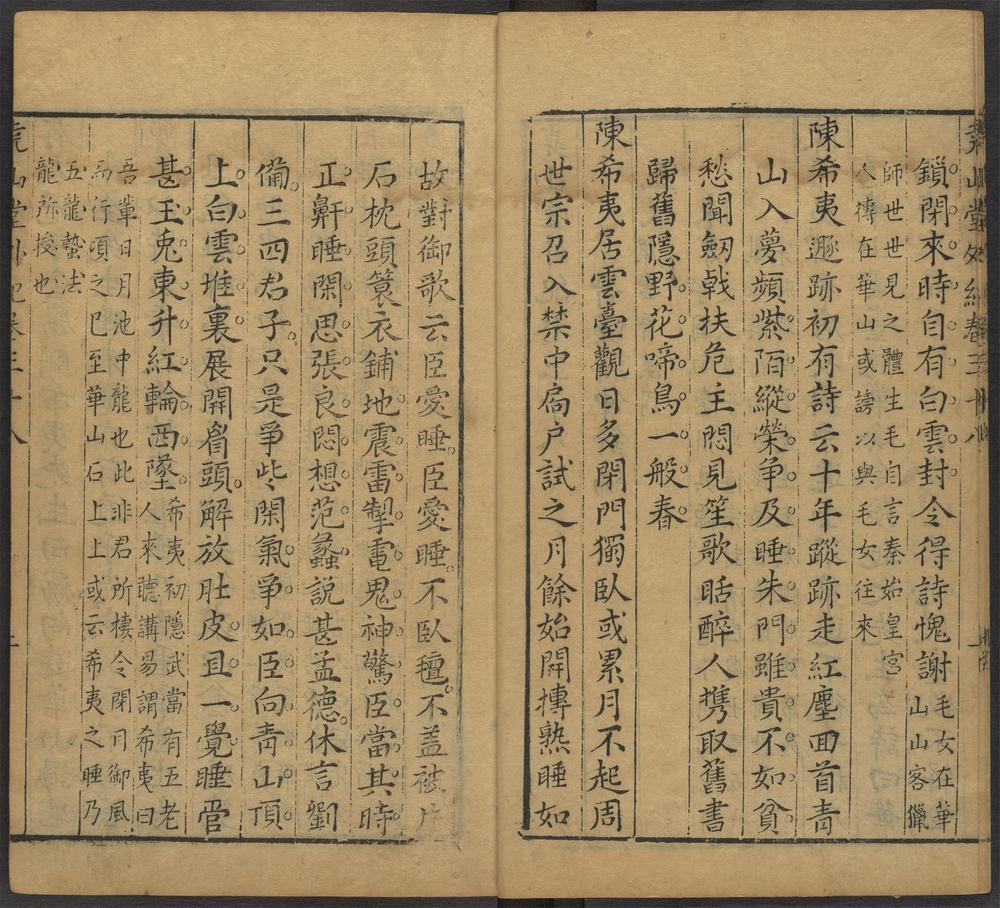 堯山堂外紀卷三十八
鎖閉來時自有白雲封令得詩愧謝毛女在華
山山客獵
師世世見之體生毛自言秦始皇宮
人摶在華山或謗以與毛女往來
陳希夷遯跡初有詩云十年蹤跡走紅塵回首青
山入夢頻紫陌縱榮争及睡朱門雖貴不如貧
愁聞劒戟扶危主悶見笙歌聒醉人携取舊書
歸舊隱野花啼鳥一般春
陳希夷居雲臺觀日多閉門獨臥或累月不起周
世宗召入禁中扃户試之月餘始開摶熟睡如
故對御歌云臣愛睡臣愛睡不臥氊不盖被片
石枕頭簑衣鋪地震雷掣電鬼神驚臣當其時
正鼾睡閑思張良悶想范蠡說甚孟德休言劉
備三四君子只是爭些閑氣爭如臣向青山頂
上白雲堆裏展開眉頭解放肚皮且一覺睡管
甚玉兎東升紅輪西墜希夷初隱武當有五老
人來聽講易謂希夷曰
吾輩日月池中龍也此非君所棲令閉目御風
而行頃之已至華山石上上或云希夷之睡乃
五龍蟄法
龍所授也
堯山堂外紀卷三十八